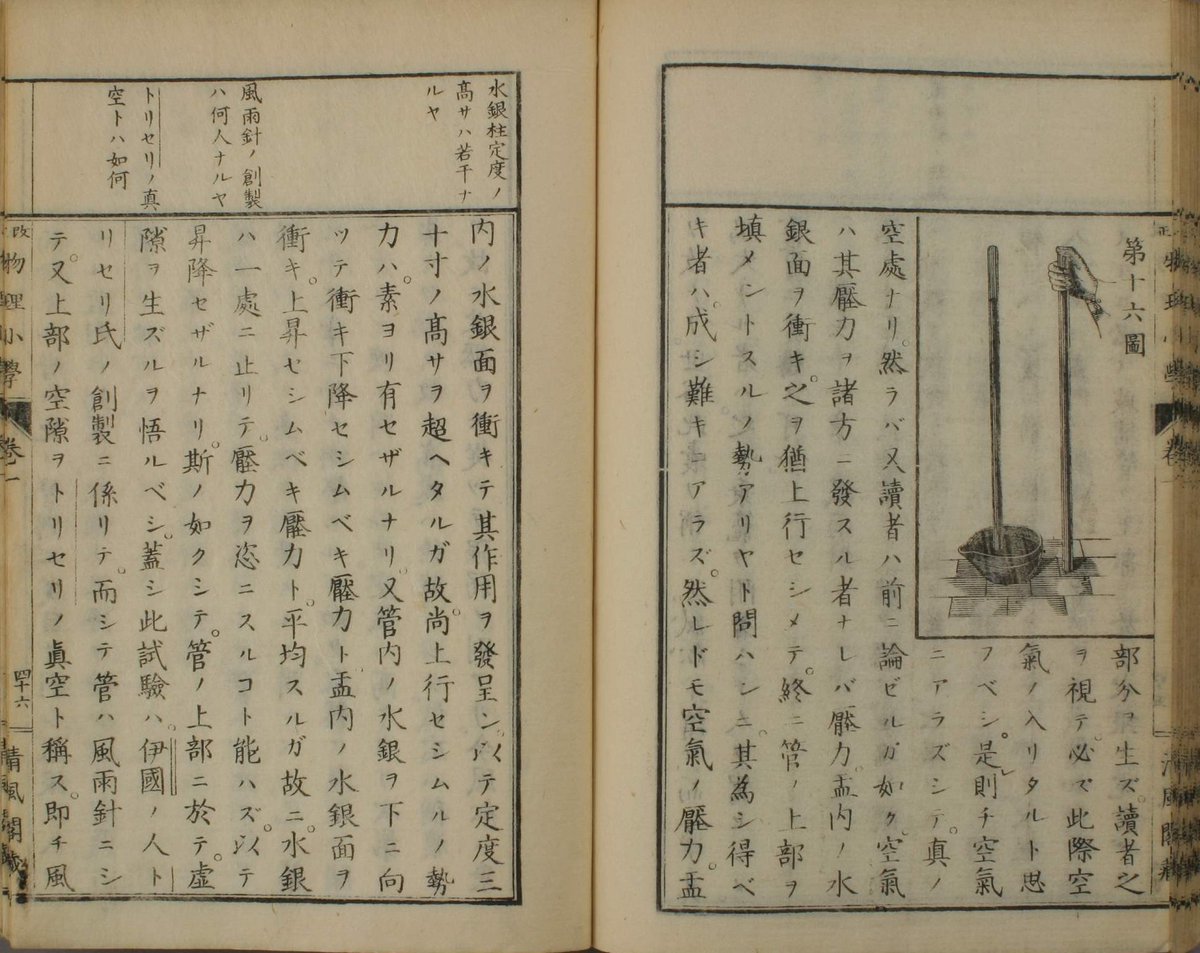 第十六圖
部分ヲ生ズ。讀者之
ヲ視テ必ズ此際空
氣ノ入リタルト思
フベシ。是レ則チ空氣
ニアラズシテ。真ノ
空處ナリ。然ラバ又讀者ハ前ニ論ビルガ如ク。空氣
ハ其壓力ヲ諸方ニ發スル者ナレバ壓力。盂内ノ水
銀面ヲ衝キ。之ヲ猶上行セシメテ。終ニ管ノ上部ヲ
填メントスルノ勢アリヤト問ハンニ。其為シ得ベ
キ者ハ。成シ難キニアラズ。然レドモ空氣ノ壓力。盂
水銀柱定度ノ
髙サハ若干ナ
ルヤ
風雨針ノ創製
ハ何人ナルヤ
トリセリノ真
空トハ如何
内ノ水銀面ヲ衝キテ其作用ヲ發呈ン。以テ定度三
十寸ノ髙サヲ超ヘタルガ故。尚上行セシムルノ勢
力ハ。素ヨリ有セザルナリ。又管内ノ水銀ヲ下ニ向
ツテ衝キ下降セシムベキ壓力ト。盂内ノ水銀面ヲ
衝キ。上昇セシムベキ壓力ト。平均スルガ故ニ。水銀
ハ一處ニ止リテ。壓力ヲ恣ニスルコト能ハズ。以テ
昇降セザルナリ。斯ノ如クシテ。管ノ上部ニ於テ。虚
隙ヲ生ズルヲ悟ルベシ。蓋シ此試驗ハ。伊國ノ人ト
リセリ氏ノ創製ニ係リテ。而シテ管ハ風雨針ニシ
テ。又上部ノ空隙ヲトリセリノ眞空ト稱ス。即チ風
物理小學 卷一
四十六